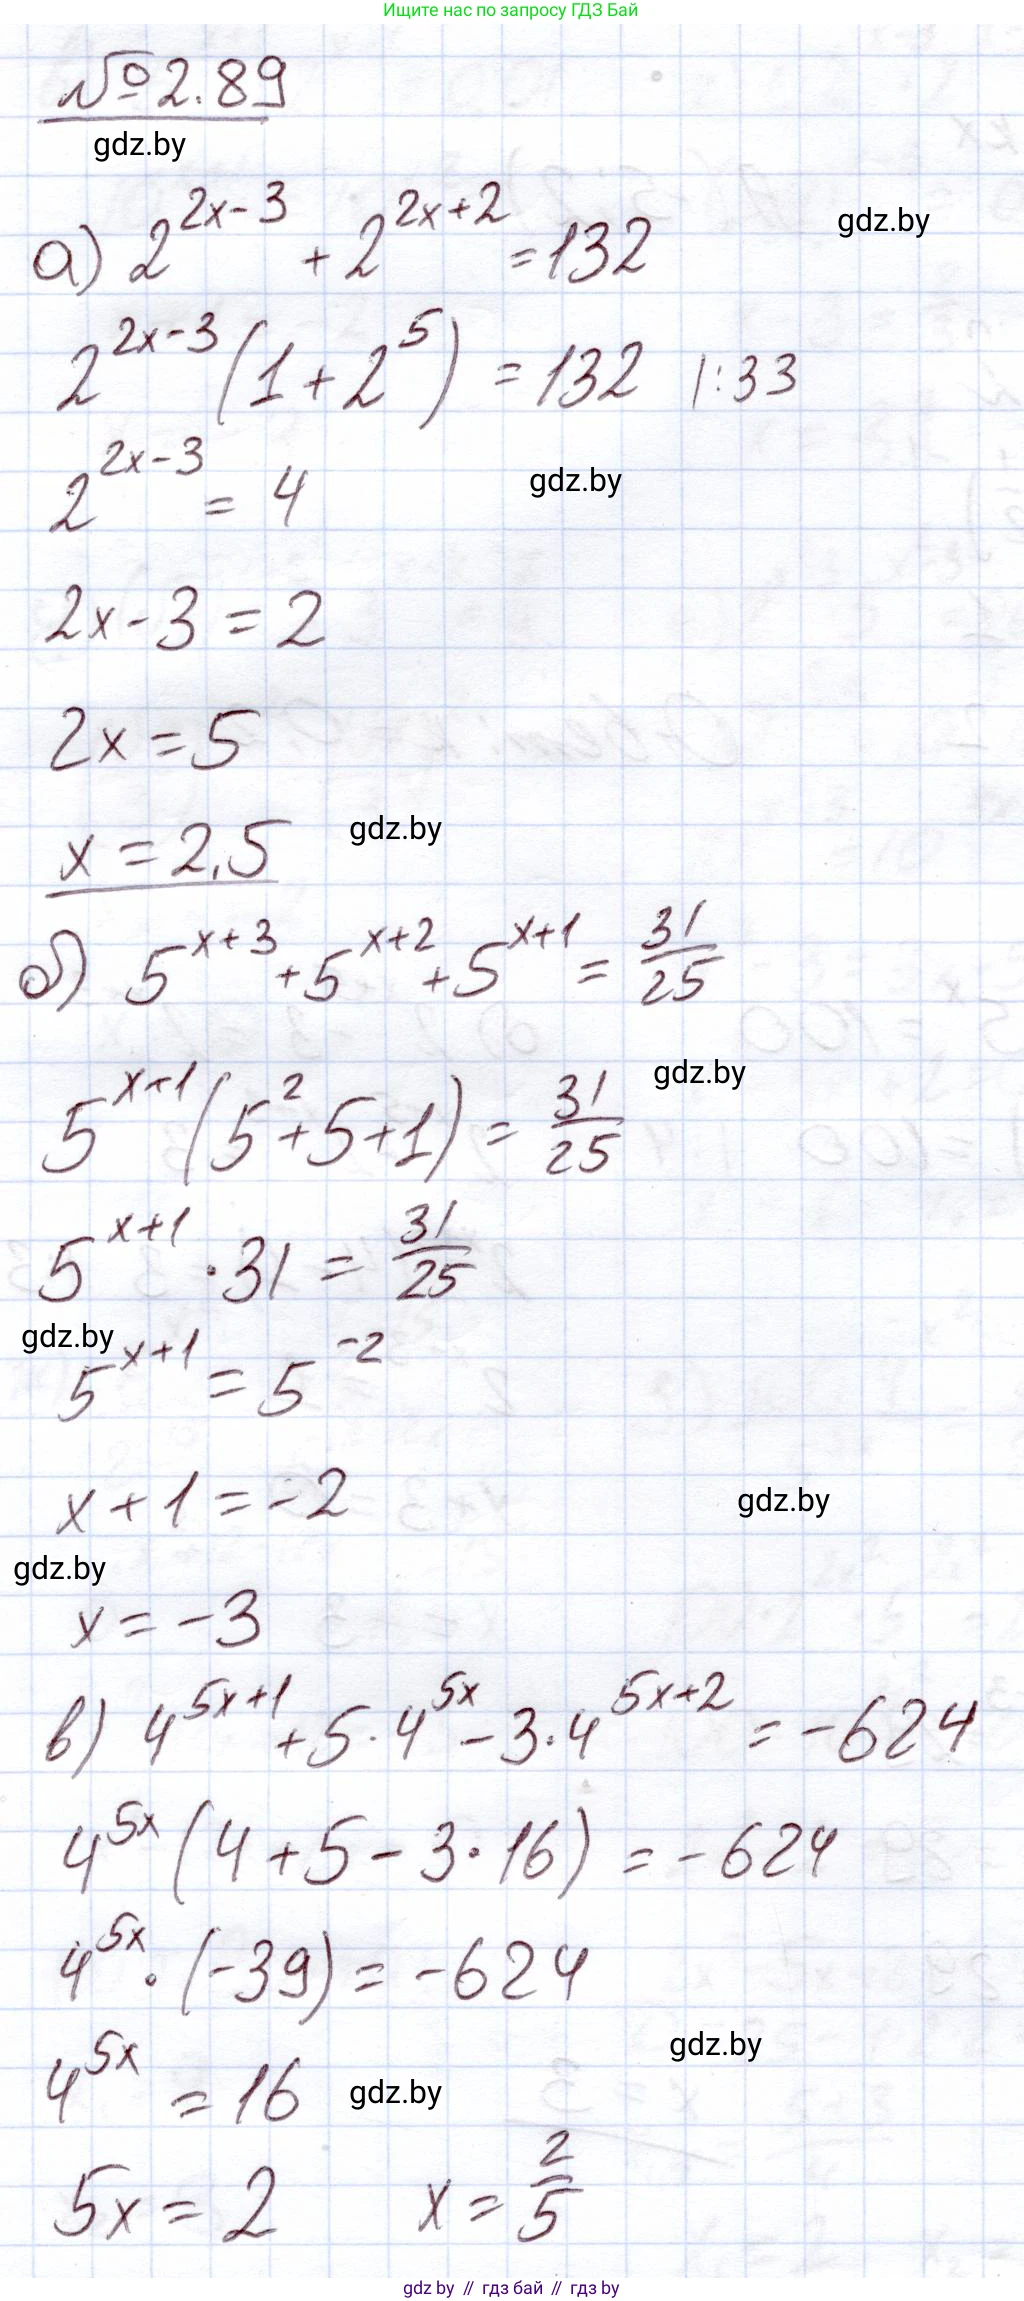 Ищите нас по запросу ГДЗ Бай
№2.89
gdz.by
а) 2^{2x-3} + 2^{2x+2} = 132
gdz.by
2^{2x-3} (1 + 2^5) = 132 |:33
2^{2x-3} = 4
gdz.by
2x - 3 = 2
2x = 5
x = 2,5
gdz.by
б) 5^{x+3} + 5^{x+2} + 5^{x+1} = 31/25
gdz.by
5^{x+1} (5^2 + 5 + 1) = 31/25
5^{x+1} · 31 = 31/25
gdz.by
5^{x+1} = 5^{-2}
x + 1 = -2
gdz.by
gdz.by
x = -3
в) 4^{5x+1} + 5 · 4^{5x} - 3 · 4^{5x+2} = -624
4^{5x} (4 + 5 - 3 · 16) = -624
4^{5x} · (-39) = -624
gdz.by
4^{5x} = 16
gdz.by
5x = 2 x = 2/5
gdz by // гдз бай // gdz by